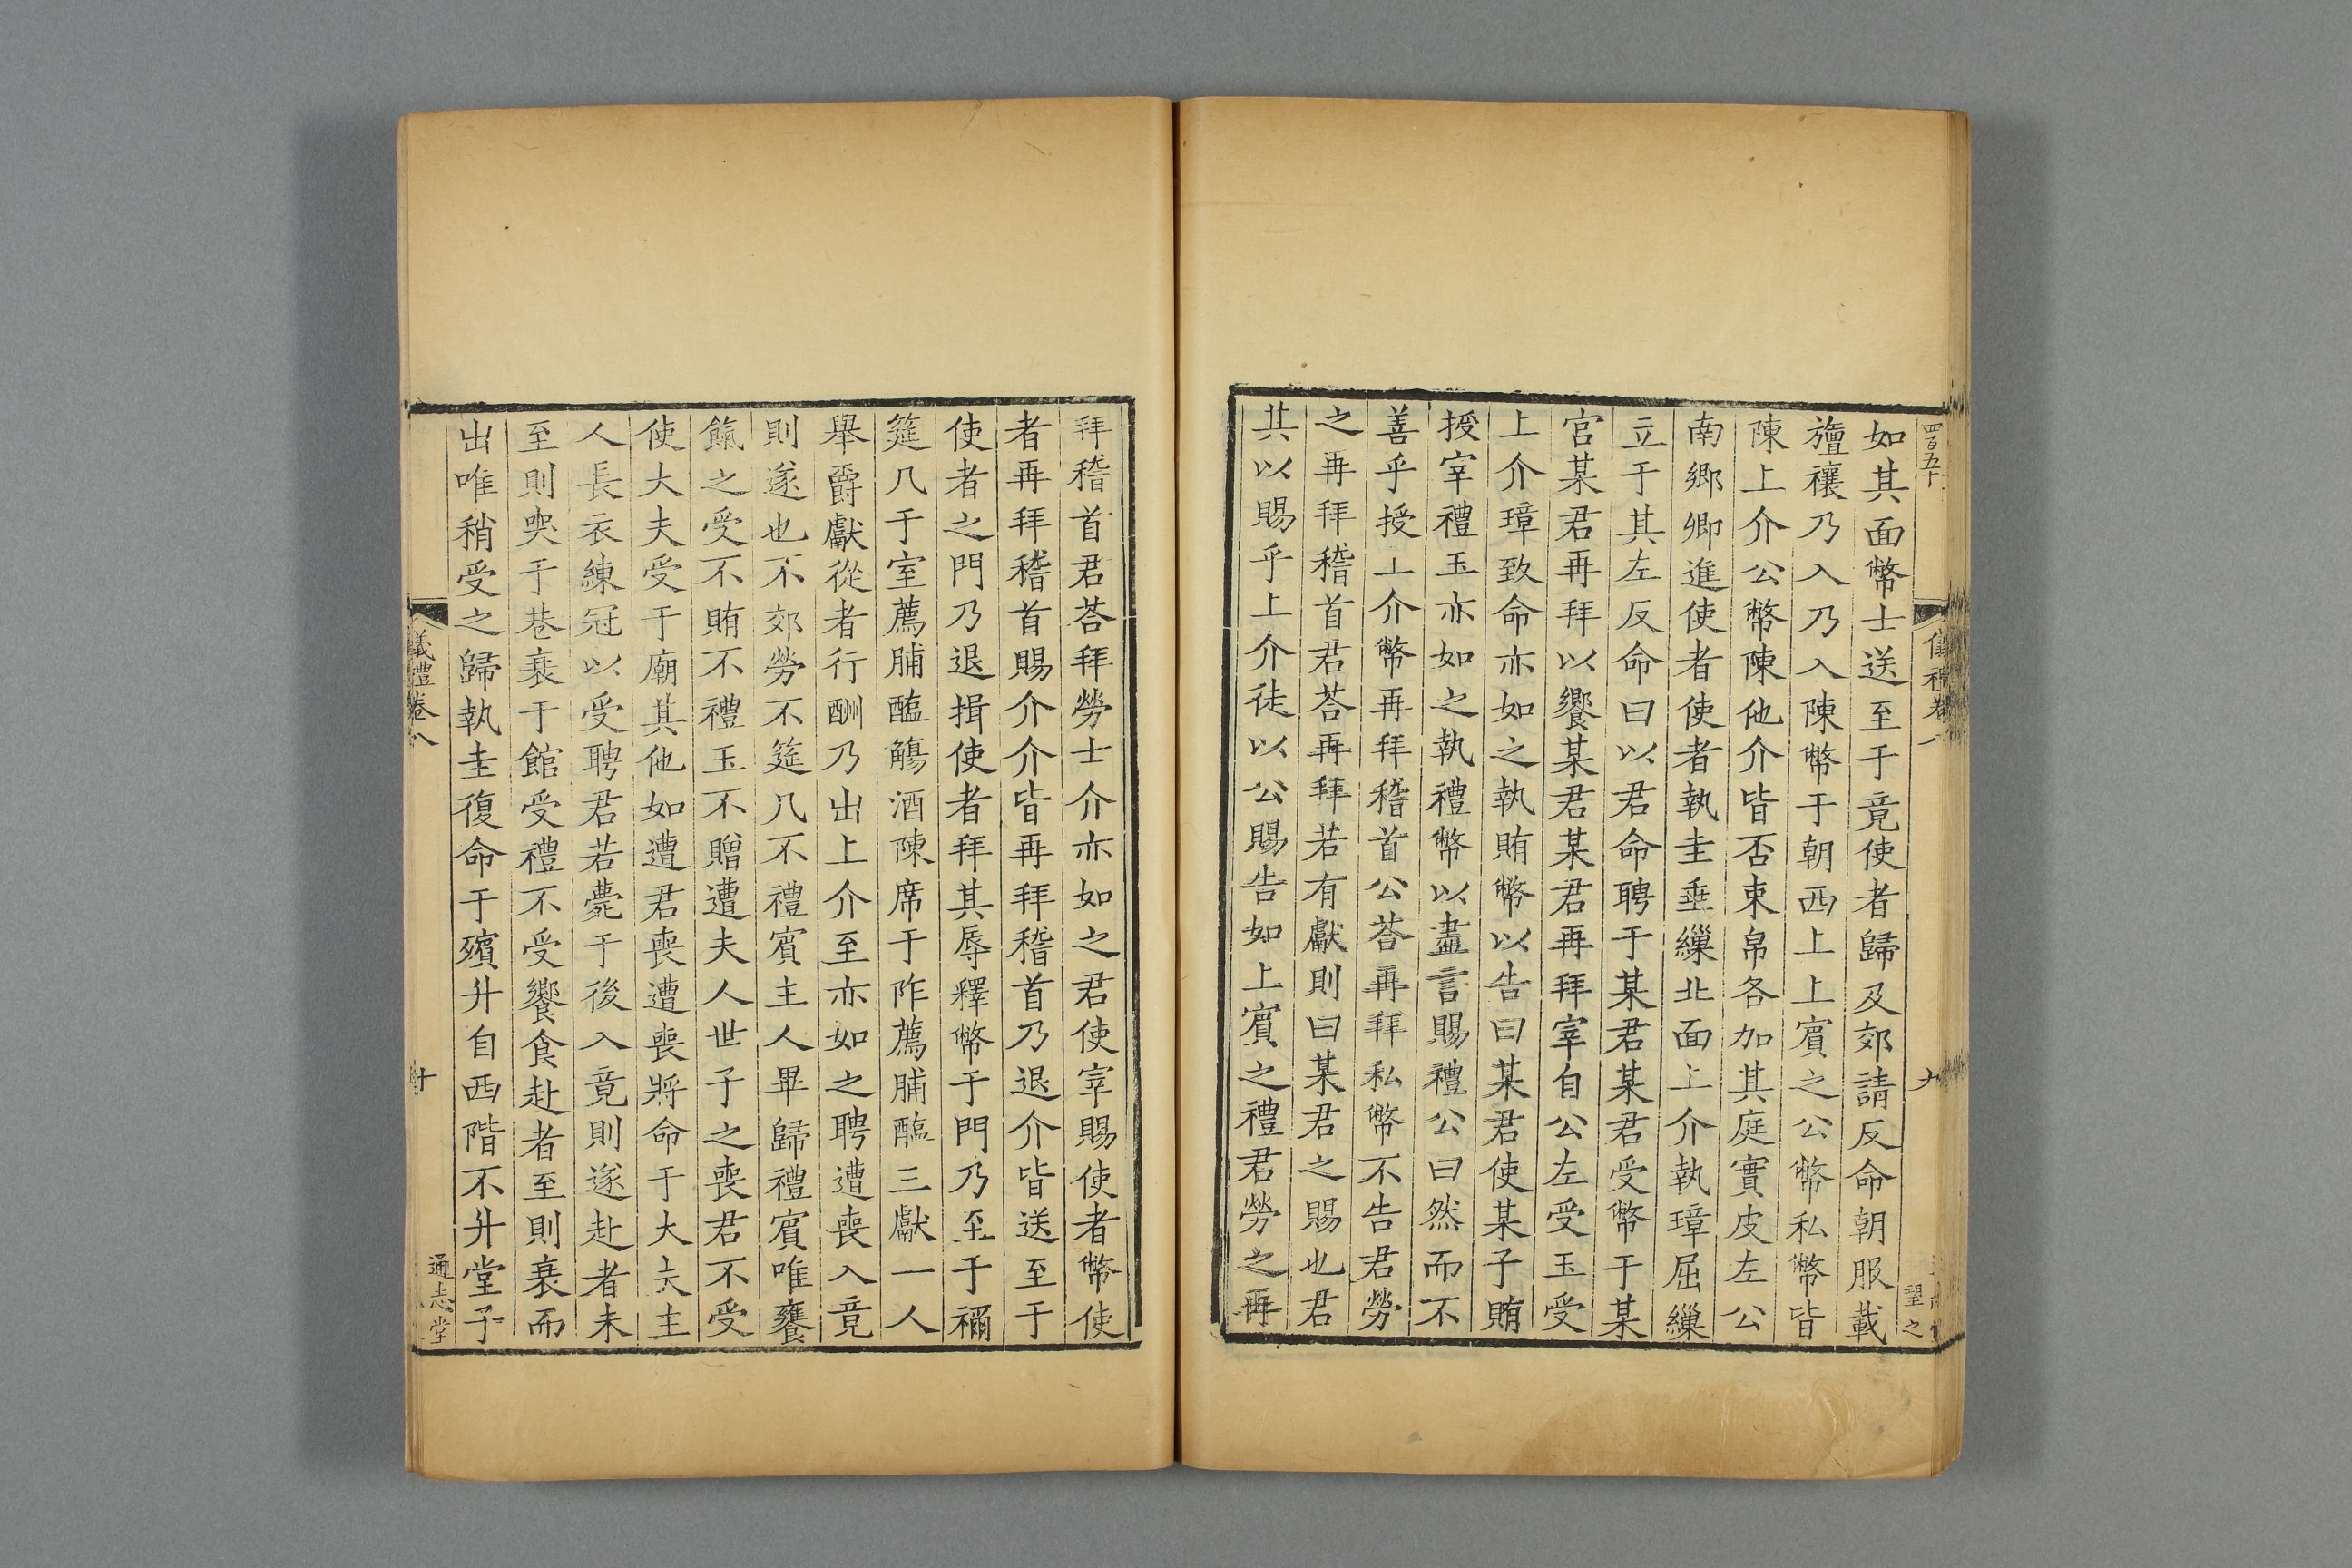 四百五十
儀禮卷八
九
望之
如其面幣士送至于竟使者歸及郊請反命朝服載
旜禳乃入乃入陳幣于朝西上上賓之公幣私幣皆
陳上介公幣陳他介皆否束帛各加其庭實皮左公
南鄉卿進使者使者執圭垂繅北面上介執璋屈繅
立于其左反命曰以君命聘于某君某君受幣于某
宮某君再拜以饗某君某君再拜宰自公左受玉受
上介璋致命亦如之執賄幣以告曰某君使某子賄
授宰禮玉亦如之執禮幣以盡言賜禮公曰然而不
善乎授上介幣再拜稽首公荅再拜私幣不告君勞
之再拜稽首君荅再拜若有獻則曰某君之賜也君
其以賜乎上介徒以公賜告如上賓之禮君勞之再
拜稽首君荅拜勞士介亦如之君使宰賜使者幣使
者再拜稽首賜介介皆再拜稽首乃退介皆送至于
使者之門乃退揖使者拜其辱釋幣于門乃至于禰
筵几于室薦脯醢觴酒陳席于阼薦脯醢三獻一人
舉爵獻從者行酬乃出上介至亦如之聘遭喪入竟
則遂也不郊勞不筵几不禮賓主人畢歸禮賓唯饔
餼之受不賄不禮玉不贈遭夫人世子之喪君不受
使大夫受于廟其他如遭君喪遭喪將命于大夫主
人長衣練冠以受聘君若薨于後入竟則遂赴者未
至則哭于巷衰于館受禮不受饗食赴者至則衰而
出唯稍受之歸執圭復命于殯升自西階不升堂子
儀禮卷八
十
通志堂